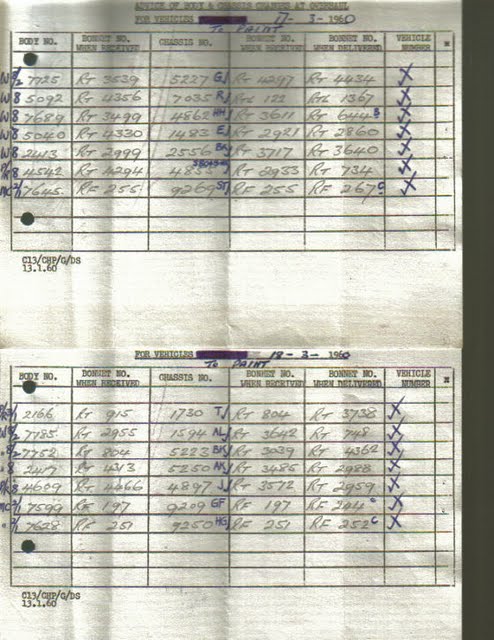 ADVICE OF BODY & CHASSIS CHANGES AT OVERHAUL
FOR VEHICLES 17 - 3 - 1960
To PAINT
BODY NO. BONNET NO. WHEN RECEIVED CHASSIS NO. BONNET NO. WHEN RECEIVED BONNET NO. WHEN DELIVERED VEHICLE NUMBER
7725 RT 3539 5227 GJ RT 4297 RT 4434 X
W8 5092 RT 4356 7035 RJ 122 1367 X
W8 7689 RT 3499 4862 HH RT 3611 RT 644 B X
W8 5040 RT 4330 1483 EJ RT 2921 RT 2860 X
W8 2413 RT 2999 2556 RT 3717 RT 3640 X
4542 RT 4294 RT 2933 RT 734 X
7645 RF 255 9269 ST RF 255 RF 267 C X
C13/CHP/G/DS
13.1.60
FOR VEHICLES 18 - 3 - 1960
To PAINT
BODY NO. BONNET NO. WHEN RECEIVED CHASSIS NO. BONNET NO. WHEN RECEIVED BONNET NO. WHEN DELIVERED VEHICLE NUMBER
2166 RT 915 1730 TJ RT 804 RT 3738 X
7785 RT 2955 1594 AL RT 3642 RT 748 X
7752 RT 804 5223 RT 3039 RT 4362 X
8 2417 RT 4313 5250 AK RT 3485 RT 2988 X
4609 RT 4466 4897 J RT 3572 RT 2959 X
7599 RF 197 9209 GF RF 197 RF 244 C X
7628 RF 251 9250 HG RF 251 RF 252 C X
C13/CHP/G/DS
13.1.60